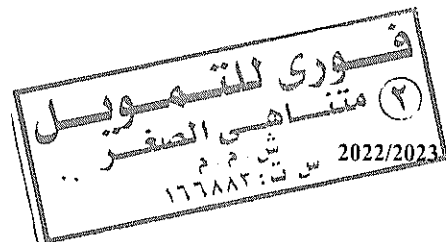 فورى للتمويل
متناهى الصغر ٢
ش . م . م
س ت : ١٦٦٨٨٢
2022/2023